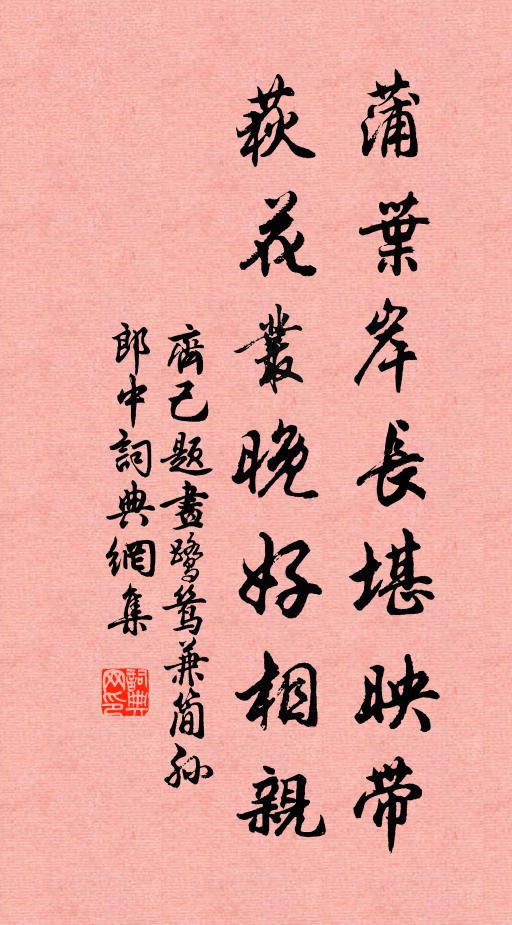 蒲葉岸長堪映帶
萩花叢晚好相親
齊己題畫鷺鷥兼簡孫
郎中詞典網集
詞典
网印